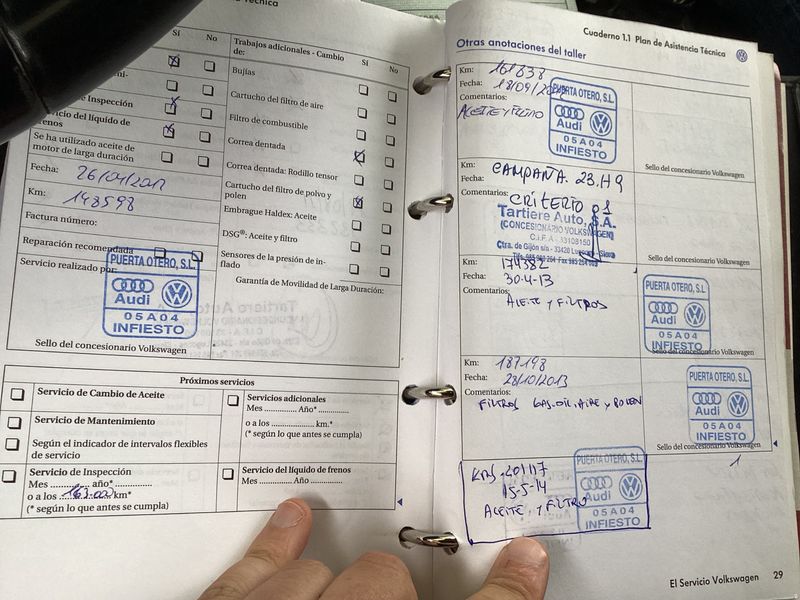 Técnica
Sí No
Inspección
Servicio del líquido de
frenos
Se ha utilizado aceite de
motor de larga duración
Fecha: 26/04/2012
Km: 148598
Factura número:
Reparación recomendada
Servicio realizado por:
PUERTA OTERO, S.L.
Audi
05A04
INFIESTO
Sello del concesionario Volkswagen
Trabajos adicionales - Cambio Sí No
de:
Bujías
Cartucho del filtro de aire
Filtro de combustible
Correa dentada
Correa dentada: Rodillo tensor
Cartucho del filtro de polvo y
polen
Embrague Haldex: Aceite
DSG®: Aceite y filtro
Sensores de la presión de in-
flado
Garantía de Movilidad de Larga Duración:
Próximos servicios
Servicio de Cambio de Aceite
Servicio de Mantenimiento
Según el indicador de intervalos flexibles
de servicio
Servicio de Inspección
Mes ............. año* ...............
o a los km*
(* según lo que antes se cumpla)
Servicios adicionales
Mes ............ Año* ..............
o a los ................... km.*
(* según lo que antes se cumpla)
Servicio del líquido de frenos
Mes ............. Año ..............
Cuaderno 1.1 Plan de Asistencia Técnica
Otras anotaciones del taller
Km: 161838
Fecha: 18/09/
Comentarios:
ACEITE Y FILTRO
PUERTA OTERO, S.L.
Audi
05A04
INFIESTO
Sello del concesionario Volkswagen
Km:
Fecha: CAMPAÑA. 23.H9
Comentarios: CRITERIO 01
Tartiere Auto, S.A.
(CONCESIONARIO VOLKSWAGEN)
C.I.F. A - 33108150
Ctra. de Gijón s/n - 33420
Sello del concesionario Volkswagen
Km: 174382
Fecha: 30-4-13
Comentarios:
ACEITE Y FILTROS
PUERTA OTERO, S.L.
Audi
05A04
INFIESTO
Sello del concesionario Volkswagen
Km: 187198
Fecha: 28/10/2013
Comentarios:
FILTROS GAS-OIL, AIRE Y POLEN
PUERTA OTERO, S.L.
Audi
05A04
INFIESTO
Sello del concesionario Volkswagen
KMS. 201117
15-5-14
ACEITE, Y FILTRO
PUERTA OTERO, S.L.
Audi
05A04
INFIESTO
El Servicio Volkswagen 29